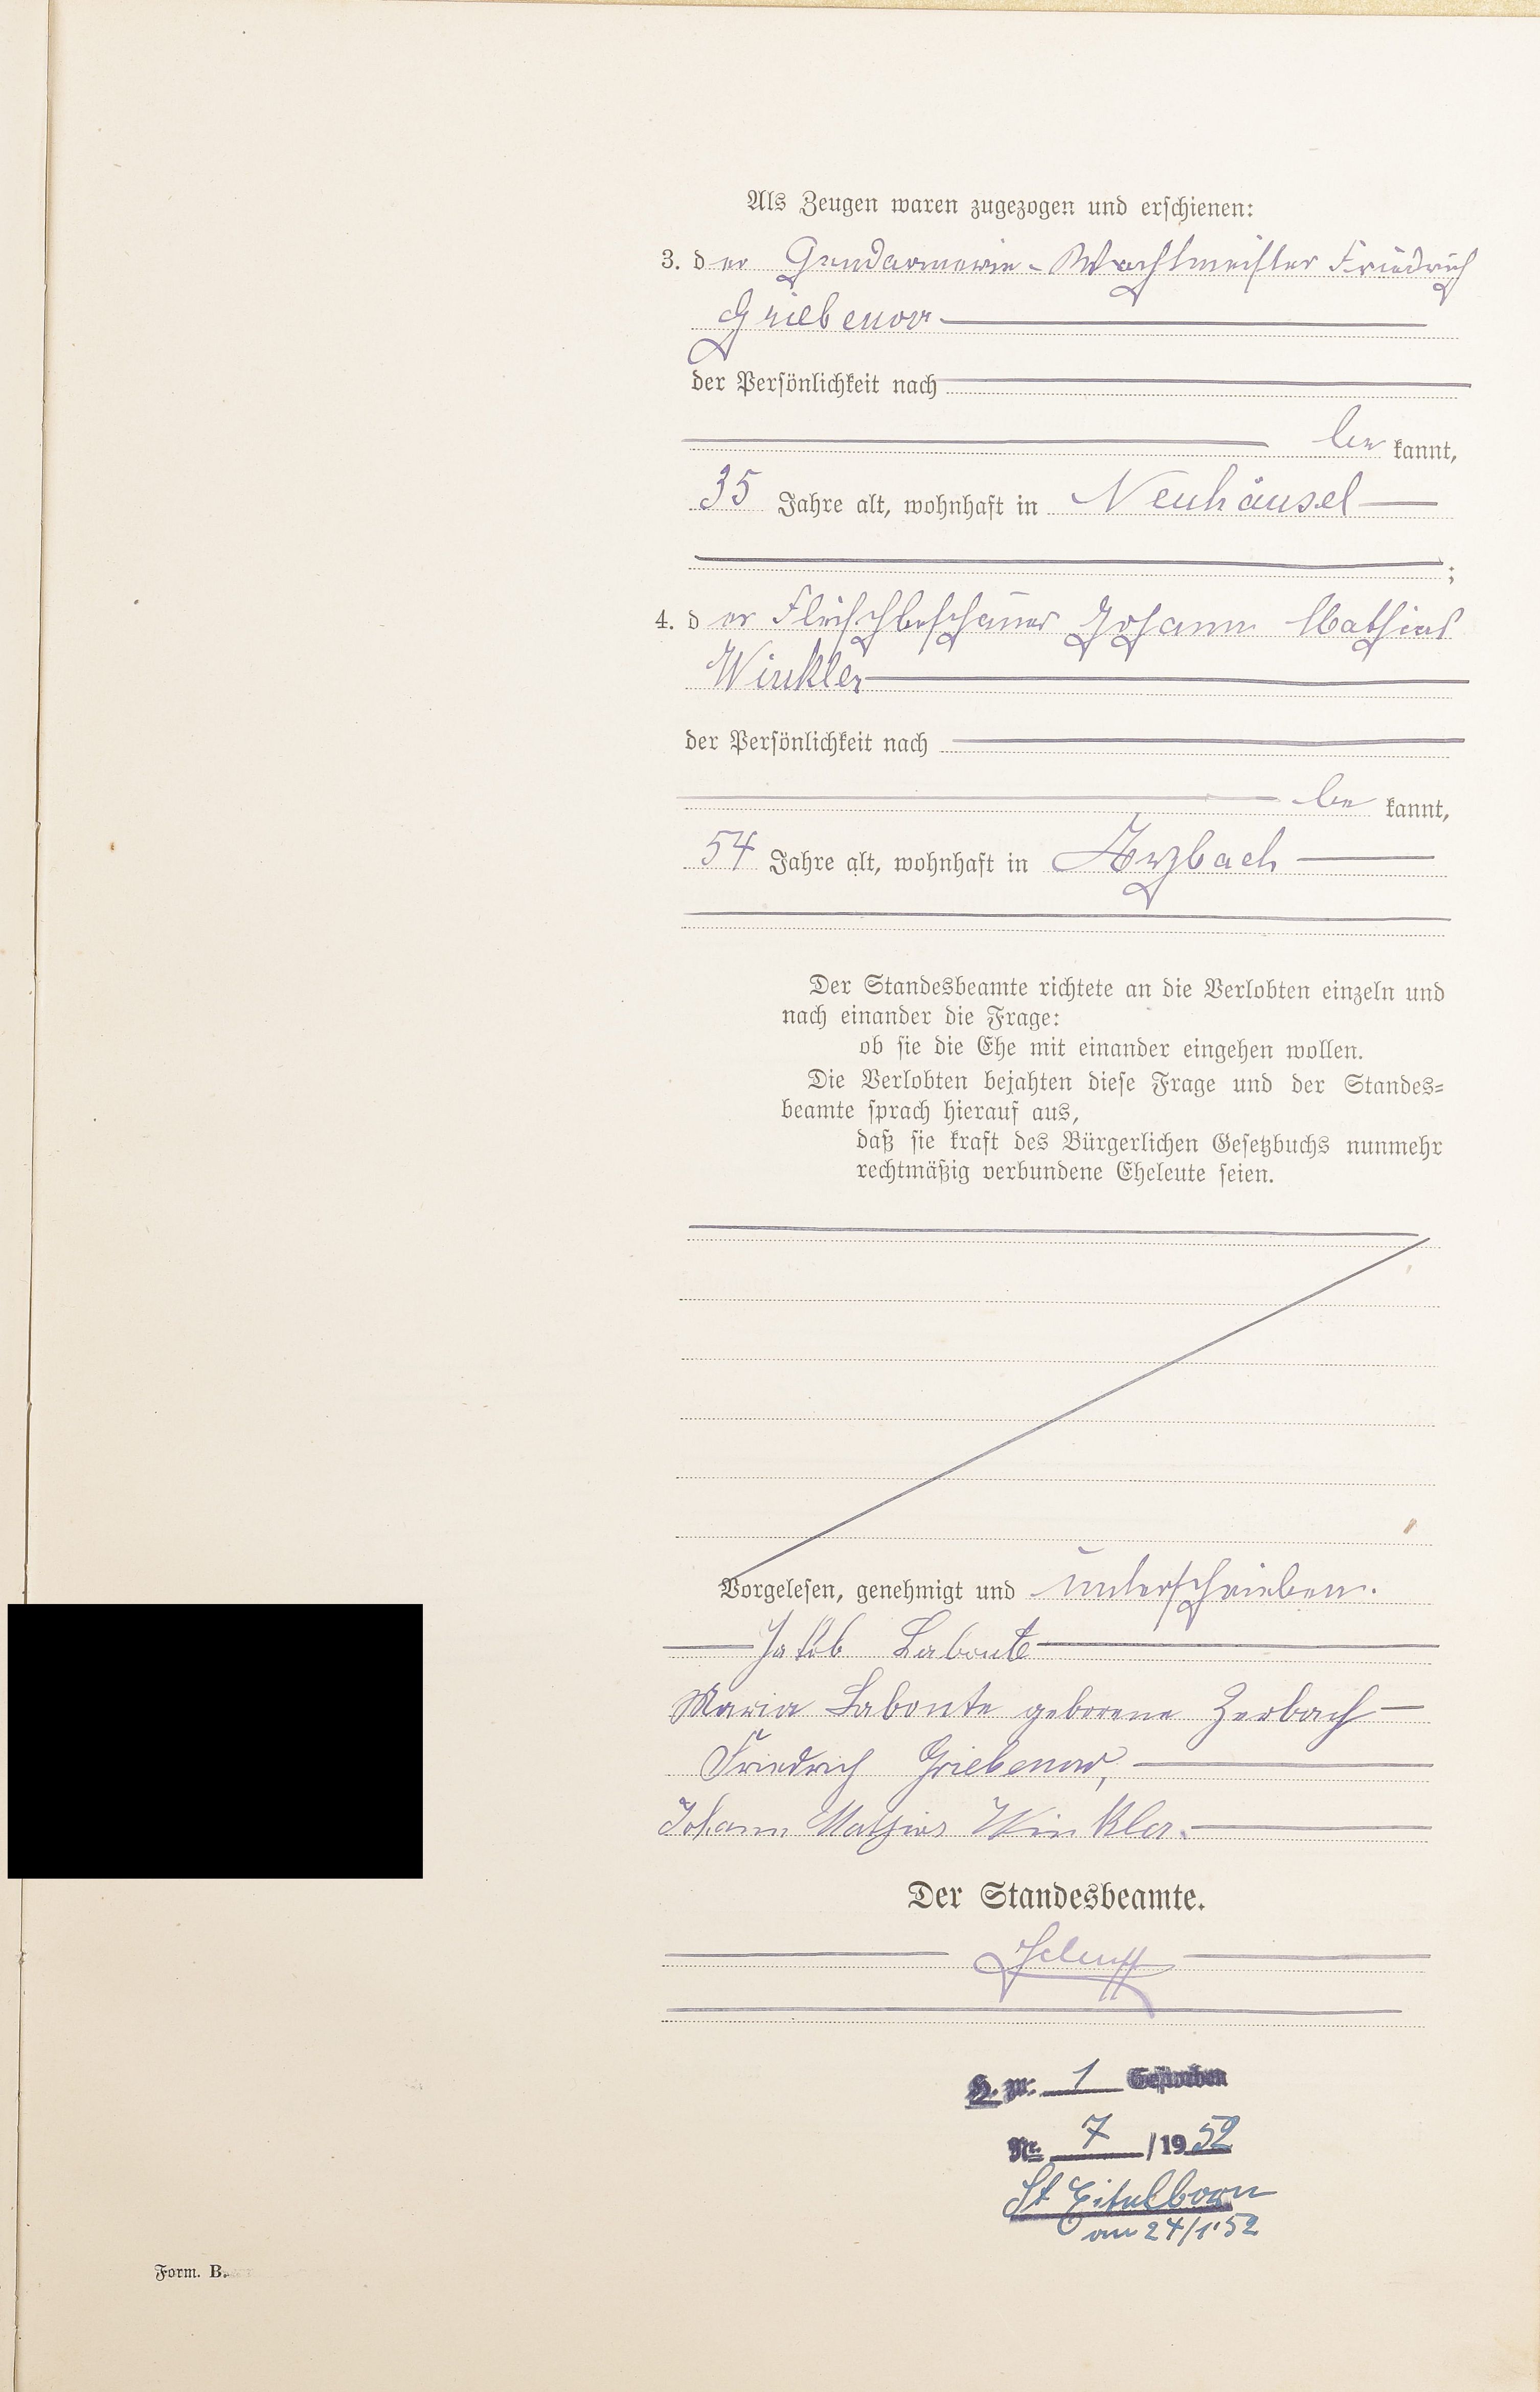 Als Zeugen waren zugezogen und erschienen:
3. der Gendarmerie-Wachtmeister Friedrich
Griebenow
der Persönlichkeit nach
bekannt,
35 Jahre alt, wohnhaft in Neuhäusel
;
4. der Fleischbeschauer Johann Mathias
Winkler
der Persönlichkeit nach
bekannt,
54 Jahre alt, wohnhaft in Arzbach
Der Standesbeamte richtete an die Verlobten einzeln und
nach einander die Frage:
ob sie die Ehe mit einander eingehen wollen.
Die Verlobten bejahten diese Frage und der Standes-
beamte sprach hierauf aus,
daß sie kraft des Bürgerlichen Gesetzbuchs nunmehr
rechtmäßig verbundene Eheleute seien.
Vorgelesen, genehmigt und unterschrieben.
Jakob Labonte
Maria Labonte geborene Zerbach
Friedrich Griebenow,
Johann Mathias Winkler.
Der Standesbeamte.
H. zu: 1 Gestorben
Nr. 7 / 1952
St Eitelborn
am 24/1.52
Form. B.